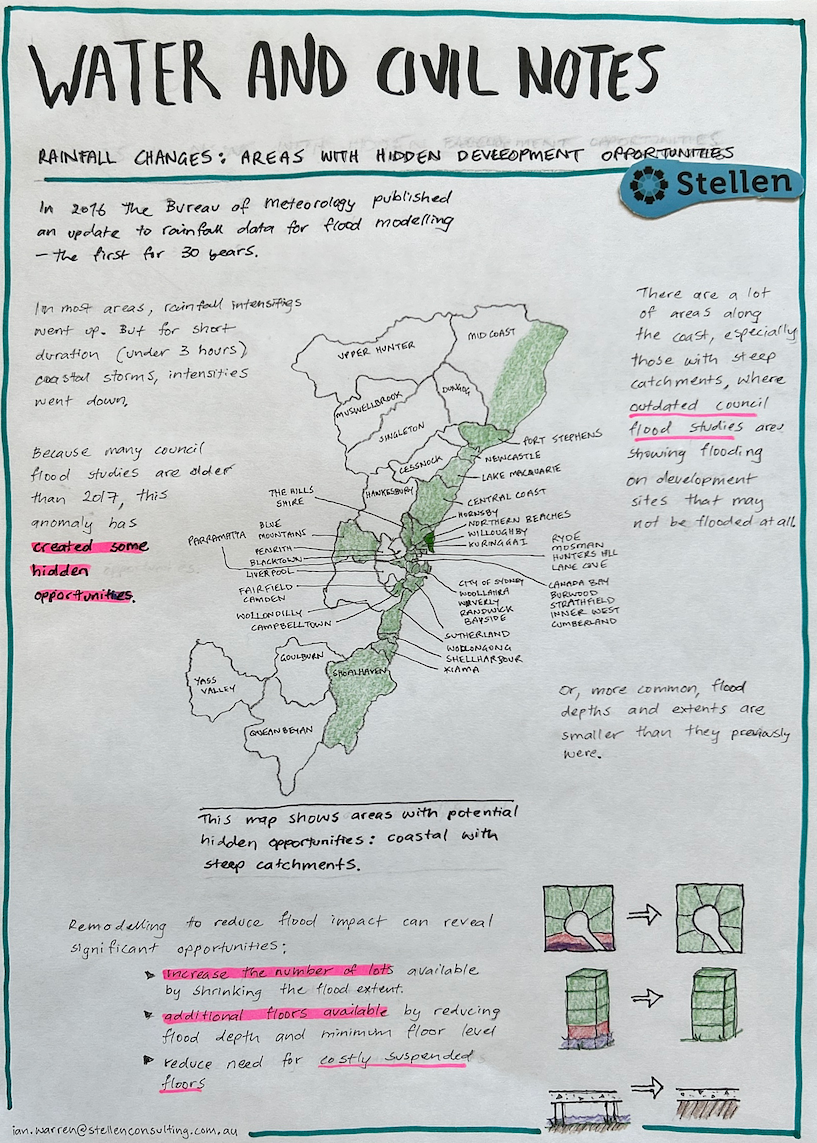 WATER AND CIVIL NOTES
RAINFALL CHANGES: AREAS WITH HIDDEN DEVELOPMENT OPPORTUNITIES
Stellen
In 2016 the Bureau of Meteorology published
an update to rainfall data for flood modelling
– the first for 30 years.
In most areas, rainfall intensities
went up. But for short
duration (under 3 hours)
coastal storms, intensities
went down.
Because many council
flood studies are older
than 2017, this
anomaly has
created some
hidden
opportunities.
There are a lot
of areas along
the coast, especially
those with steep
catchments, where
outdated council
flood studies are
showing flooding
on development
sites that may
not be flooded at all.
Or, more common, flood
depths and extents are
smaller than they previously
were.
UPPER HUNTER
MID COAST
MUSWELLBROOK
DUNGOG
SINGLETON
CESSNOCK
HAWKESBURY
PORT STEPHENS
NEWCASTLE
LAKE MACQUARIE
CENTRAL COAST
HORNSBY
NORTHERN BEACHES
WILLOUGHBY
KURINGGAI
THE HILLS
SHIRE
PARRAMATTA
BLUE
MOUNTAINS
PENRITH
BLACKTOWN
LIVERPOOL
FAIRFIELD
CAMDEN
WOLLONDILLY
CAMPBELLTOWN
RYDE
MOSMAN
HUNTERS HILL
LANE COVE
CANADA BAY
BURWOOD
STRATHFIELD
INNER WEST
CUMBERLAND
CITY OF SYDNEY
WOOLLAHRA
WAVERLY
RANDWICK
BAYSIDE
SUTHERLAND
WOLLONGONG
SHELLHARBOUR
KIAMA
GOULBURN
SHOALHAVEN
YASS
VALLEY
QUEANBEYAN
This map shows areas with potential
hidden opportunities: coastal with
steep catchments.
Remodelling to reduce flood impact can reveal
significant opportunities:
increase the number of lots available
by shrinking the flood extent.
additional floors available by reducing
flood depth and minimum floor level
reduce need for costly suspended
floors
ian.warren@stellenconsulting.com.au